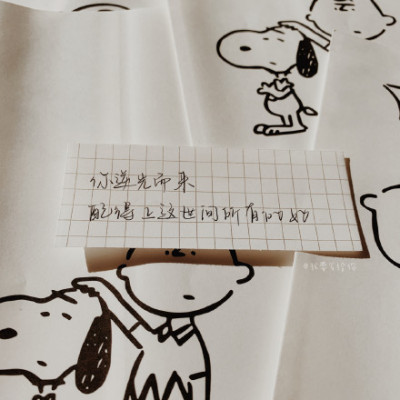 你逆光而来
配得上这世间所有的好